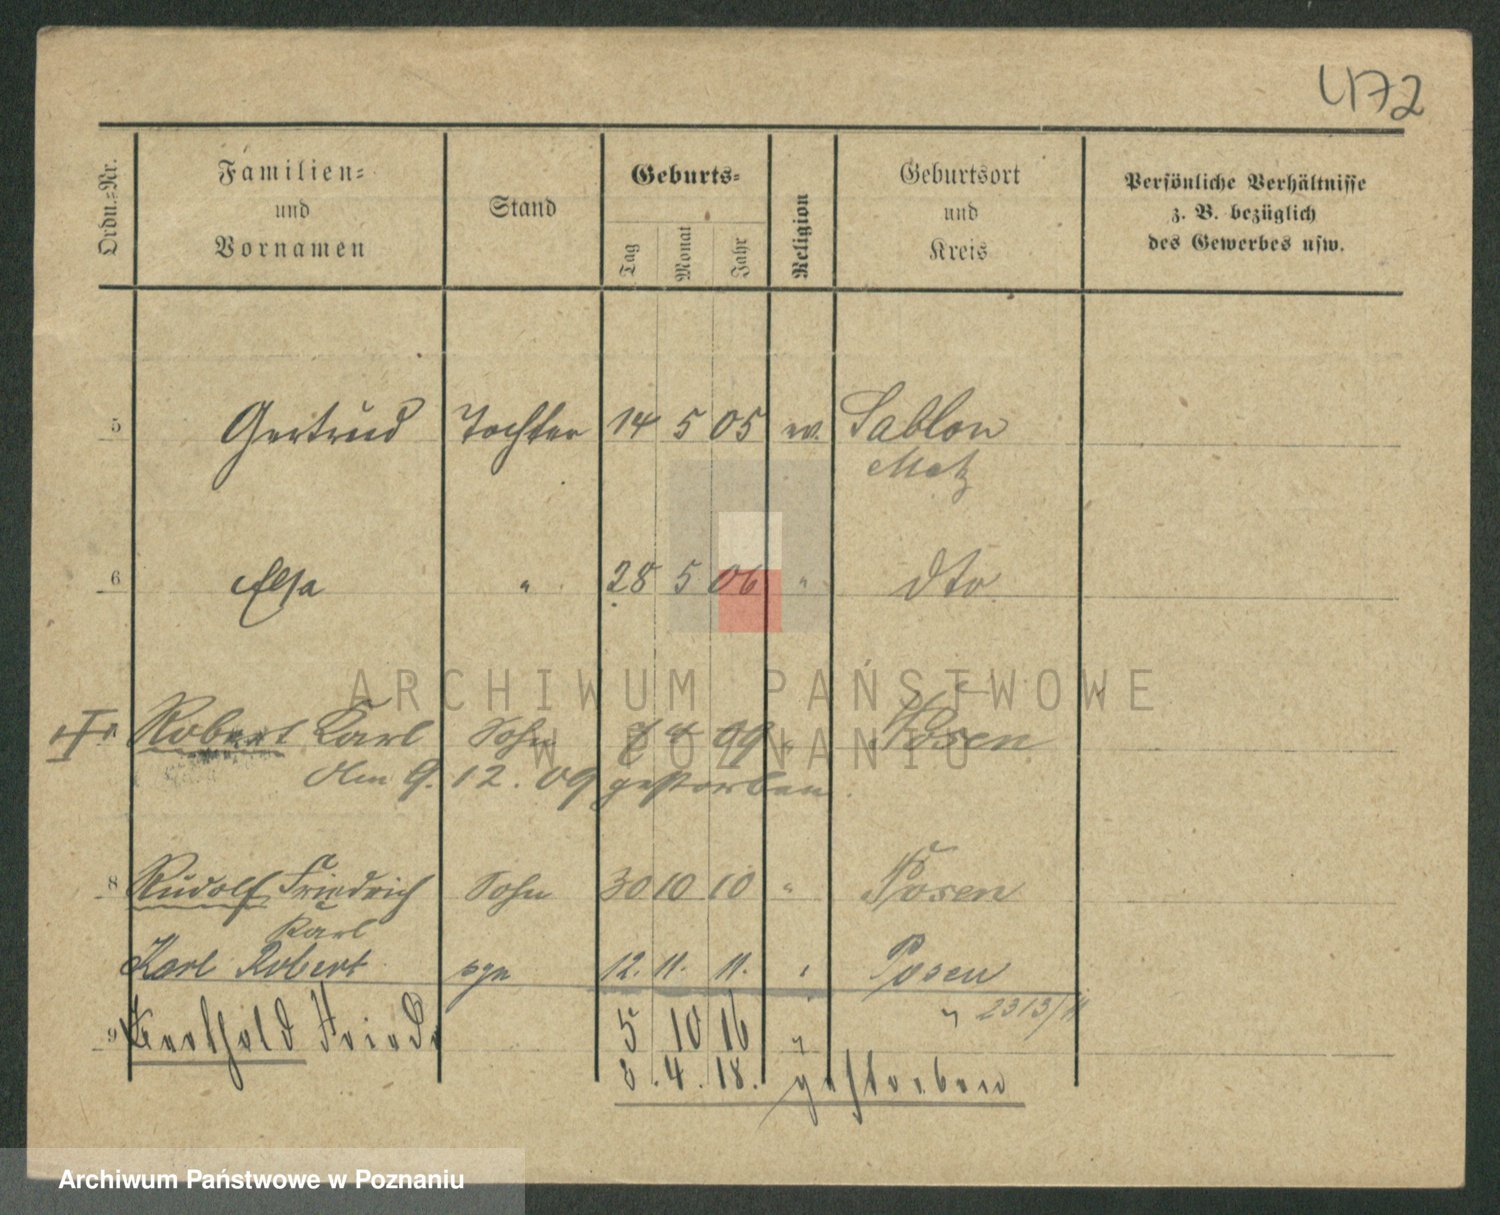 472
Ordn.=Nr. Familien= und Vornamen Stand Geburts= Tag Monat Jahr Religion Geburtsort und Kreis Persönliche Verhältnisse z. B. bezüglich des Gewerbes usw.
5 Gertrud Tochter 14 5 05 ev. Sablon
Metz
6 Elsa " 28 5 06 " dto
Robert Karl Sohn 09 " Posen
Am 9. 12. 09 gestorben.
8 Rudolf Friedrich Sohn 30 10 10 " Posen
Karl
Karl Robert 12. 11. 11. " Posen
" 2313/11
9 Berthold Friedr 5 10 16 "
4. 18. gestorben
ARCHIWUM PAŃSTWOWE
W POZNANIU
Archiwum Państwowe w Poznaniu